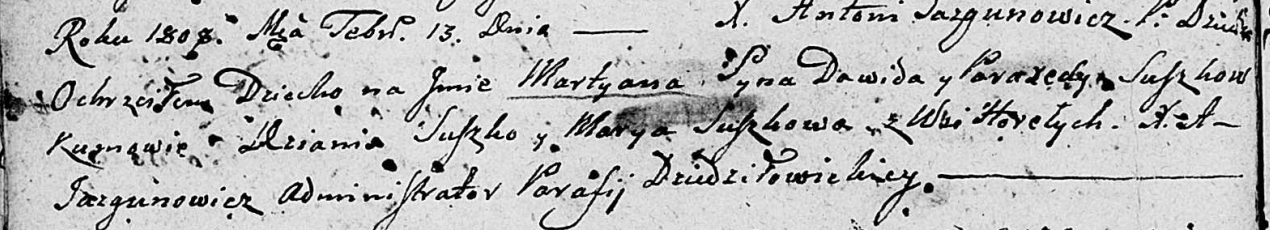 Roku 1808. Mca Febr. 13. Dnia — X. Antoni Jazgunowicz. P. Dziedz
Ochrzciłem Dziecko na Jmie Martyana Syna Dawida y Paraxedy Suszkow
Kumowie Dziania Suszko y Marya Suszkowa z Wsi Horełych. X. A—
Jazgunowicz Administrator Parafij Dziedziłowickiey. —